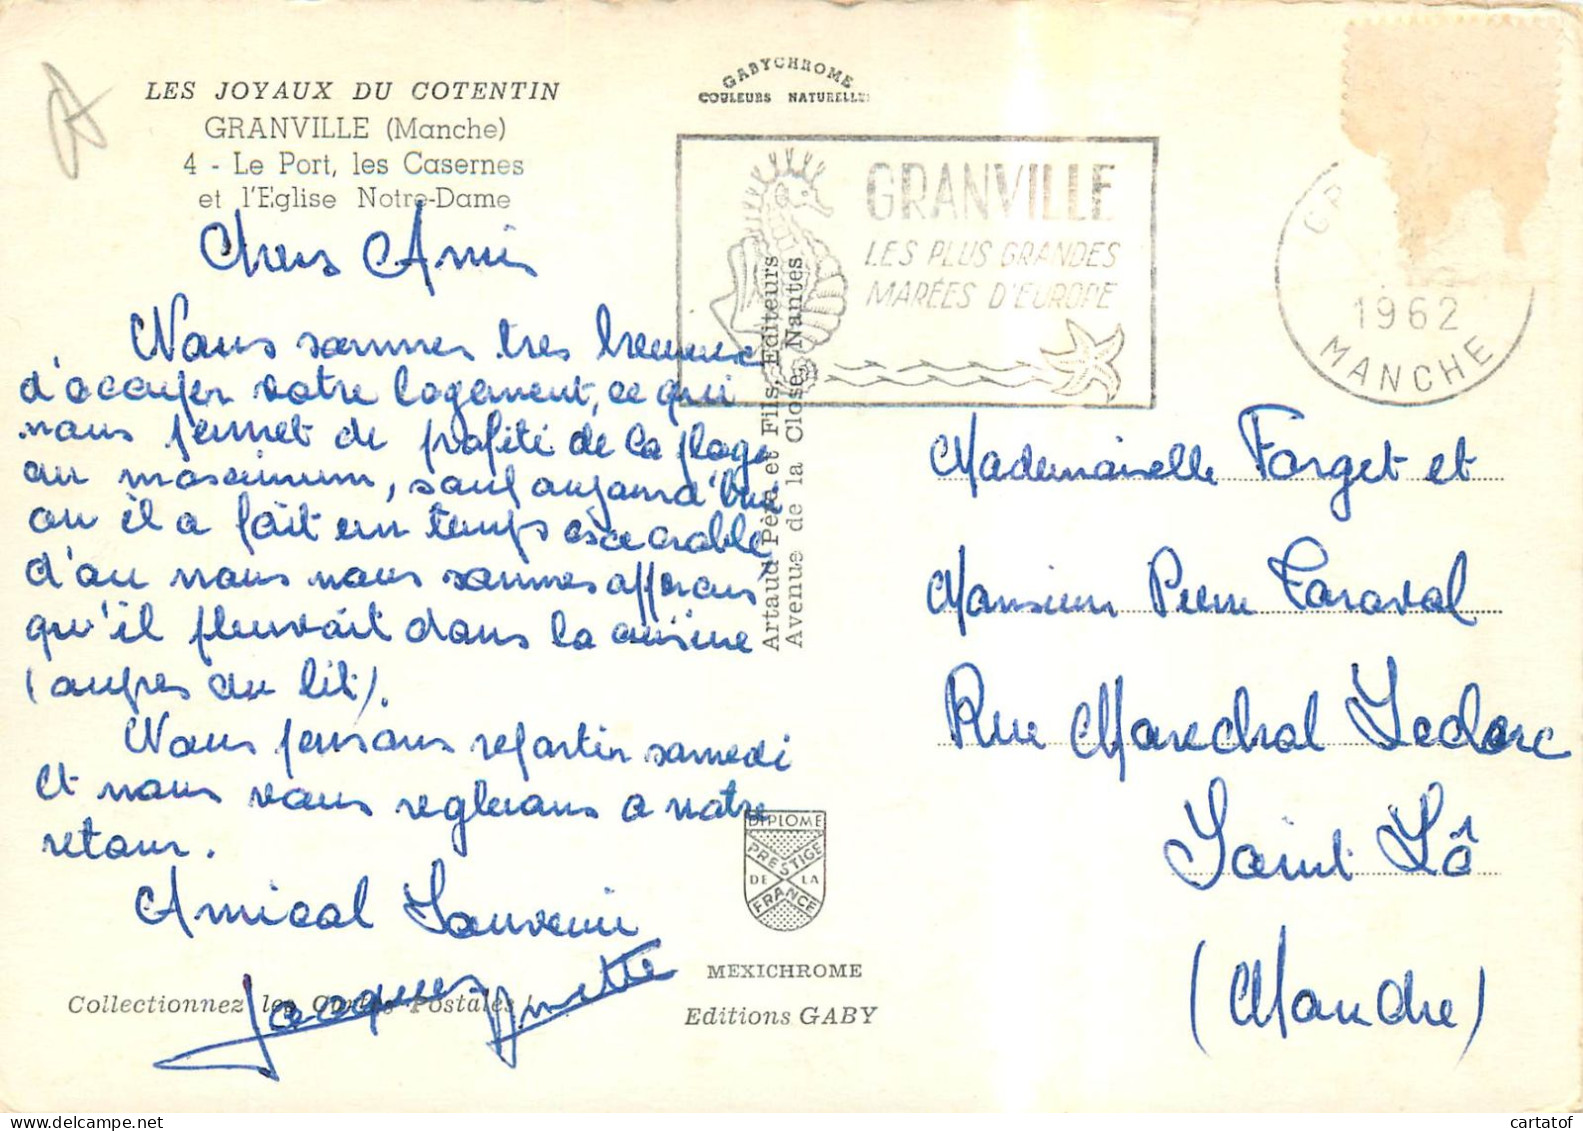 LES JOYAUX DU COTENTIN
GRANVILLE (Manche)
4 - Le Port, les Casernes
et l'Eglise Notre-Dame
GABYCHROME
COULEURS NATURELLES
GRANVILLE
LES PLUS GRANDES
MARÉES D'EUROPE
1962
MANCHE
Chers Amis
Nous sommes tres heureux
d'occuper votre logement, ce qui
nous permet de profité de la plage
au maximum, sauf aujourd'hui
ou il a fait un temps execrable
d'ou nous nous sommes apperçus
qu'il pleuvait dans la cuisine
(aupres du lit).
Nous pensons repartir samedi
et nous vous reglerons a notre
retour.
Amical Souvenir
Jacques Annette
Collectionnez les Cartes Postales !
Artaud Père et Fils, Editeurs
Avenue de la Close, Nantes
DIPLOME
PRESTIGE
DE LA
FRANCE
MEXICHROME
Editions GABY
Mademoiselle Forget et
Monsieur Pierre Taraval
Rue Marechal Leclerc
Saint Lô
(Manche)
cartatof